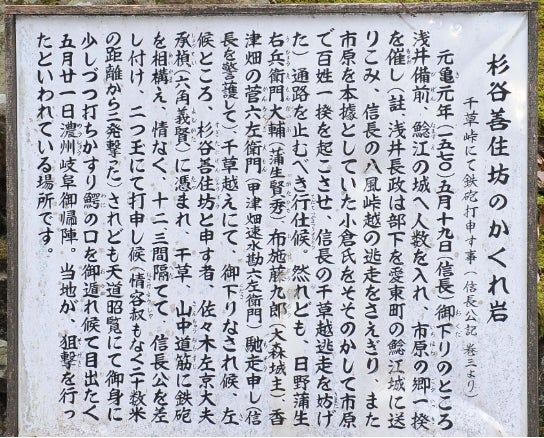 杉谷善住坊のかくれ岩
千草峠にて鉄砲打申す事（信長公記 巻三より）
元亀元年（一五七〇）五月十九日（信長）御下りのところ
浅井備前、鯰江の城へ人数を入れ、市原の郷一揆
を催し（註 浅井長政は部下を愛東町の鯰江城に送
りこみ、信長の八風峠越の逃走をさえぎり、また
市原を本據としていた小倉氏をそそのかして市原
で百姓一揆を起こさせ、信長の千草越逃走を妨げ
た）通路を止むべき行仕候。然れども、日野蒲生
右兵衛門大輔（蒲生賢秀）、布施藤九郎（大森城主）、香
津畑の菅六左衛門（甲津畑速水勘六左衛門）馳走申し（信
長を警護して）千草越えにて、御下りなされ候、左
候ところ、杉谷善住坊と申す者、佐々木左京大夫
承禎（六角義賢）に憑まれ、千草、山中道筋に鉄砲
を相構え、情なく、十二三間隔てて、信長公を差
し付け、二つ玉にて打申し候（情容赦もなく二十数米
の距離から二発撃った）されども天道昭覧にて御身に
少しづつ打ちかすり鰐の口を御遁れ候て目出たく
五月廿一日濃州岐阜御帰陣。当地が、狙撃を行っ
たといわれている場所です。